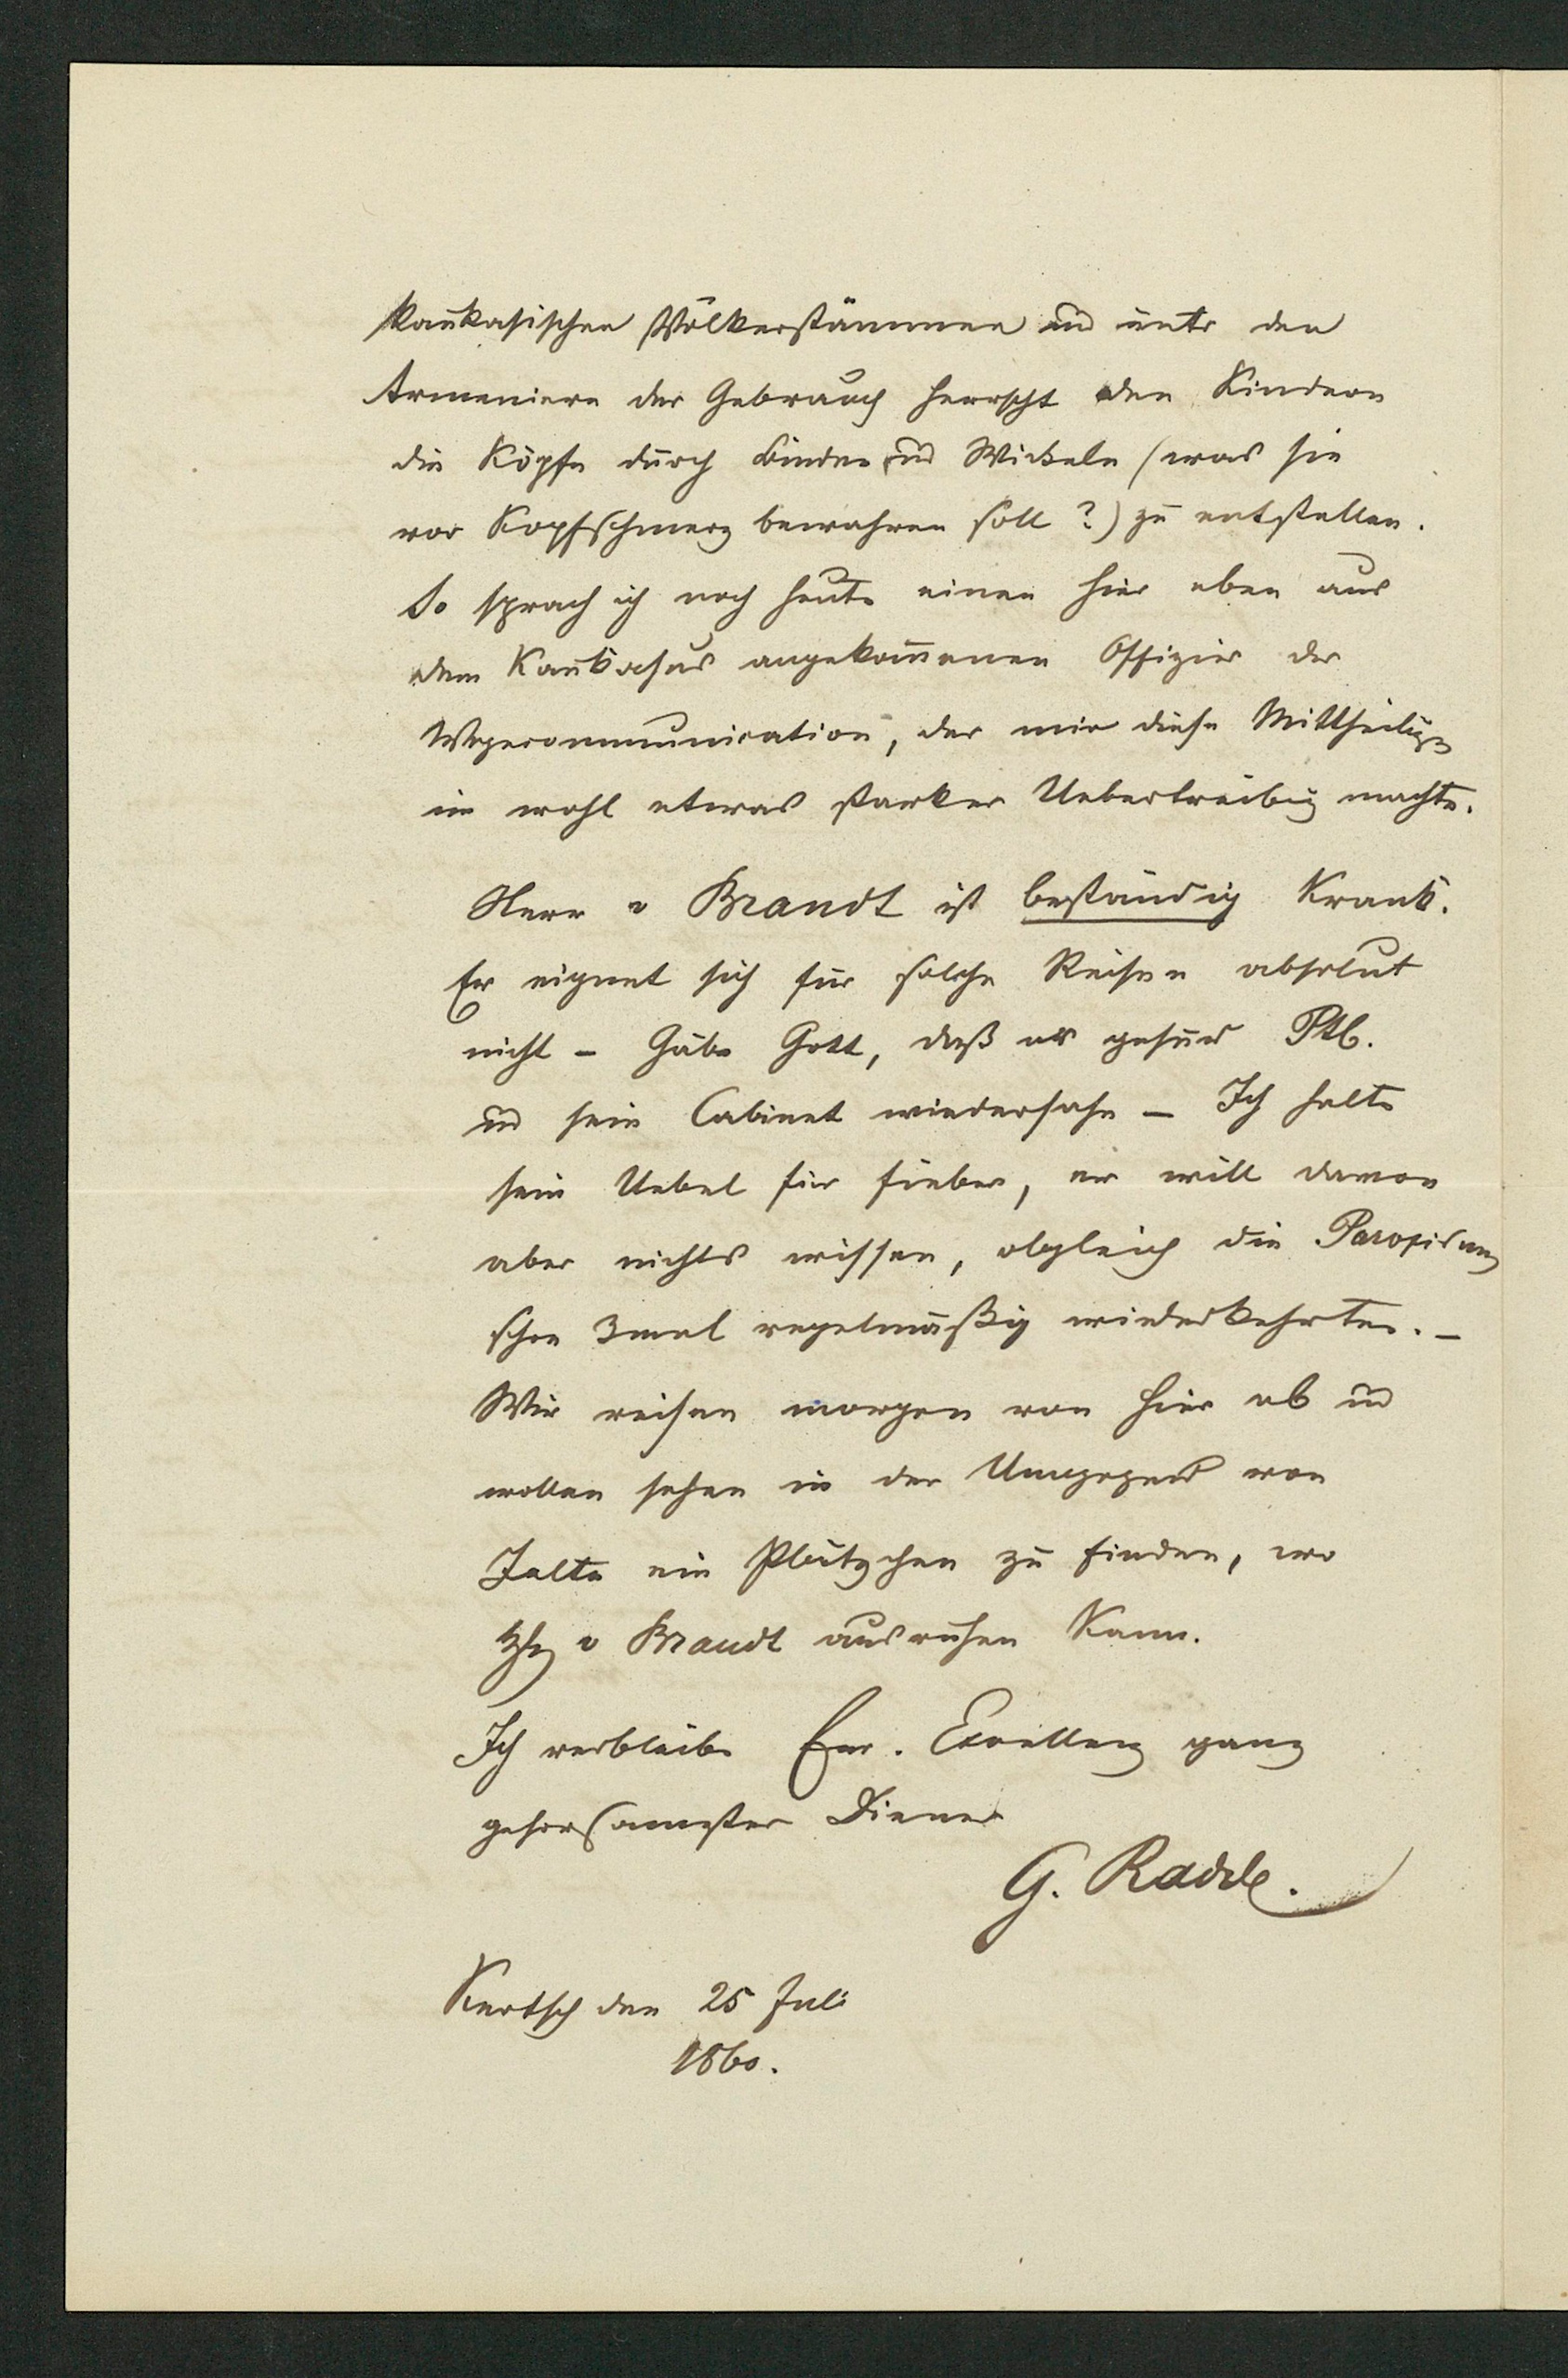 kaukasischen Völkerstämmen und unter den
Armeniern der Gebrauch herrscht den Kindern
die Köpfe durch Binden und Wickeln (was sie
vor Kopfschmerz bewahren soll?) zu entstellen.
So sprach ich noch heute einen hier eben aus
dem Kaukasus angekom̅enen Offizier der
Wegecommunication, der mir diese Mittheilung
in wohl etwas starker Uebertreibung machte.
Herr v Brandt ist beständig krank.
Er eignet sich für solche Reisen absolut
nicht – Gäbe Gott, daß er gesund Ptb.
und sein Cabinet wiedersähe – Ich halte
sein Uebel für Fieber, er will davon
aber nichts wissen, obgleich die
schon 3mal regelmäßig wiederkehrten. –
Wir reisen morgen von hier ab und
wollen sehen in der Umgegend von
Jalta ein Plätzchen zu finden, wo
v Brandt ausruhen kann.
Ich verbleibe Ew. Excellenz ganz
gehorsamster Diener
G. Radde.
Kertsch den 25 Juli
1860.